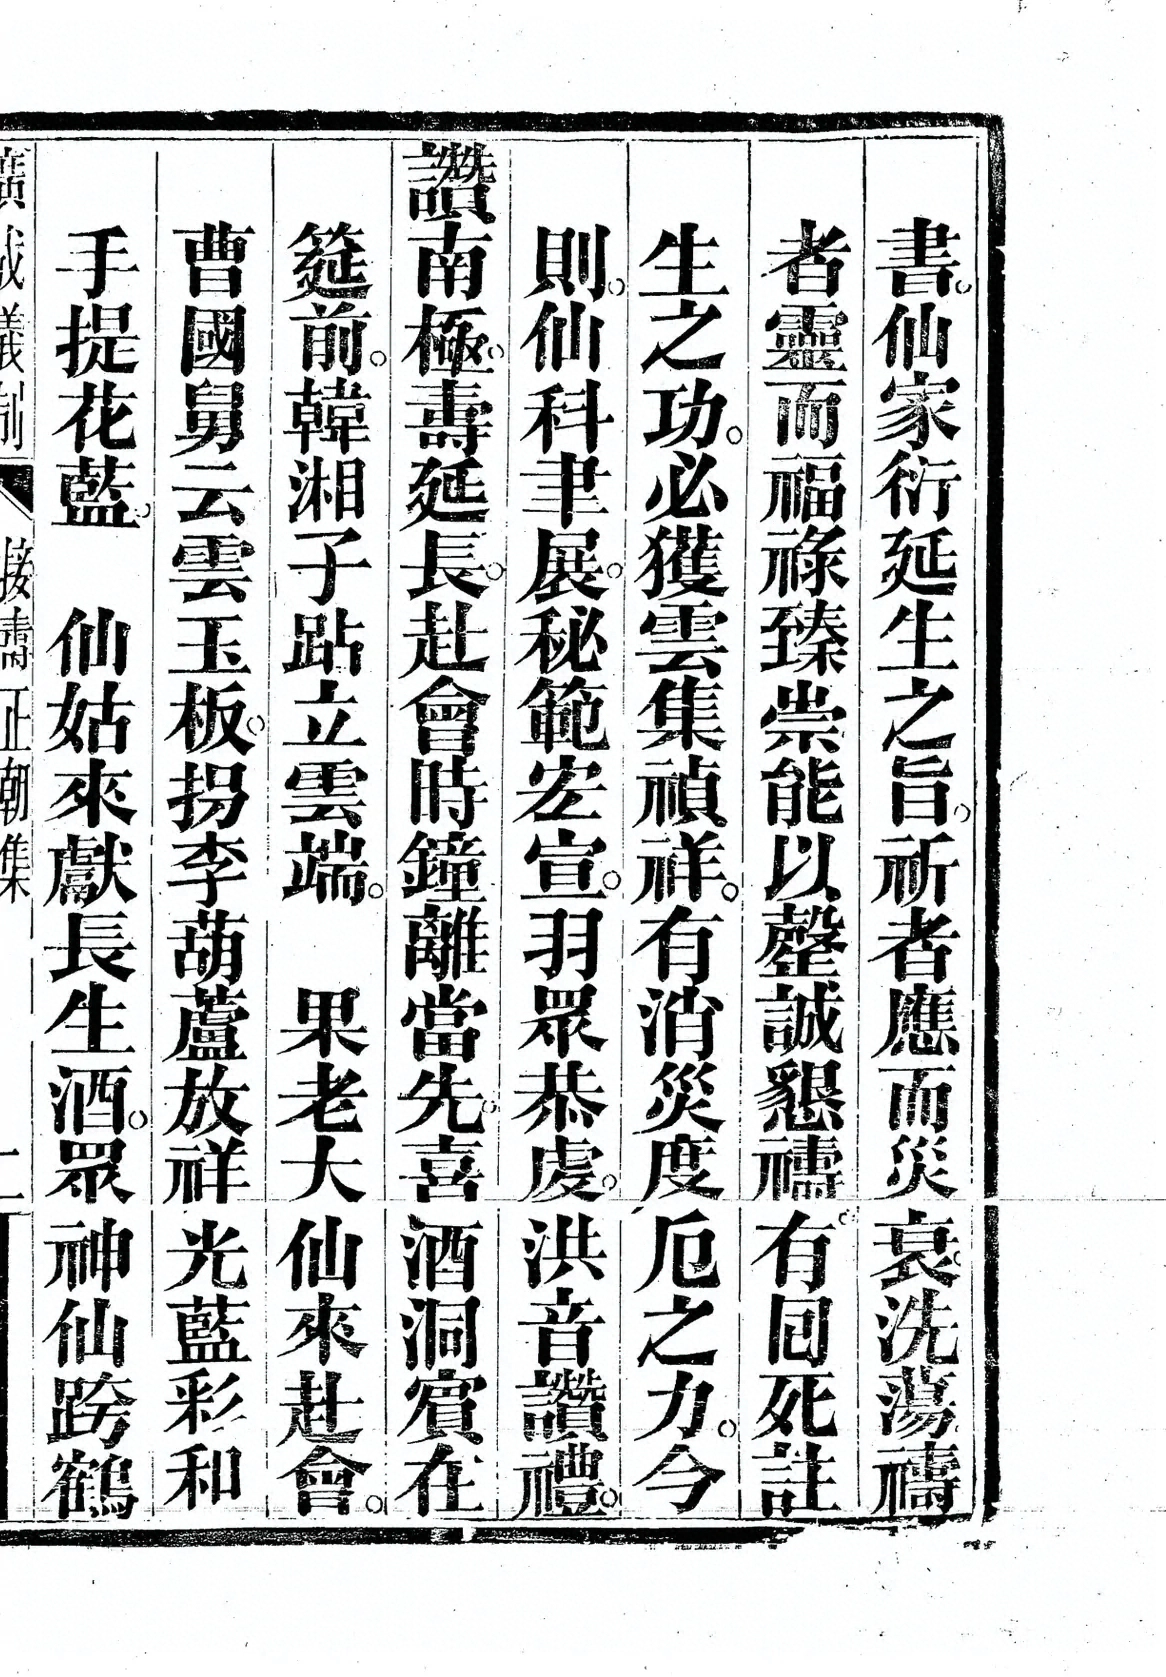 書。仙家衍延生之旨。祈者應而災衰。洗蕩禱
者靈而福祿臻崇能以罄誠懇禱。有囘死註
生之功。必獲雲集禎祥。有消災度厄之力。今
則。仙科聿展。秘範宏宣。羽眾恭虔。洪音讚禮。
讚南極。壽延長。赴會時鐘離當先。喜酒洞賓在
筵前。韓湘子跕立雲端。 果老大仙來赴會。
曹國舅云雲玉板。拐李葫蘆放祥光藍彩和
手提花藍。 仙姑來獻長生酒。眾神仙跨鶴
廣成儀制 接壽正朝集 二